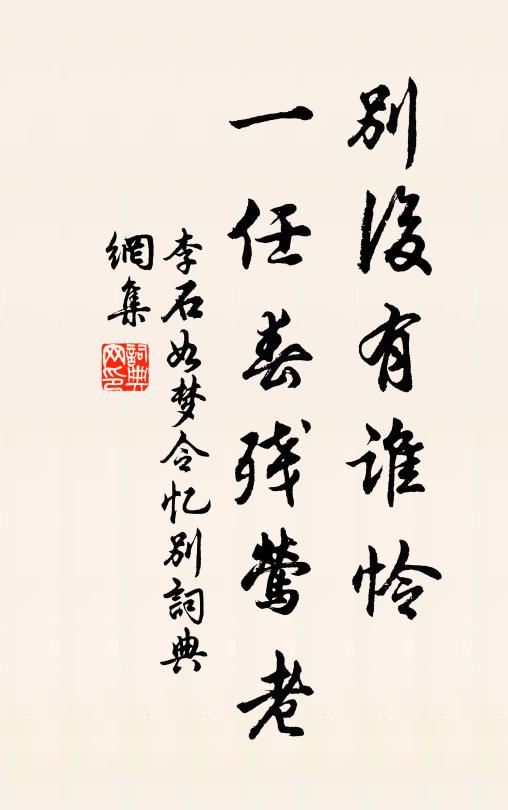 別後有谁怜
一任春残鶯老
李石如梦令忆别詞典
網集
詞典网印